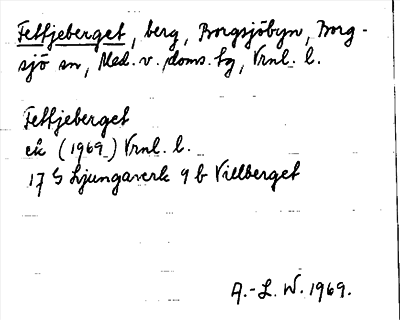 Fetfjeberget, berg, Borgsjöbyn, Borg-
sjö sn, Med. v. doms. tg, Vrnl. l.
Fetfjeberget
ek (1969) Vrnl. l.
17 G Ljungaverk 9 b Villberget
A.-L. W. 1969.